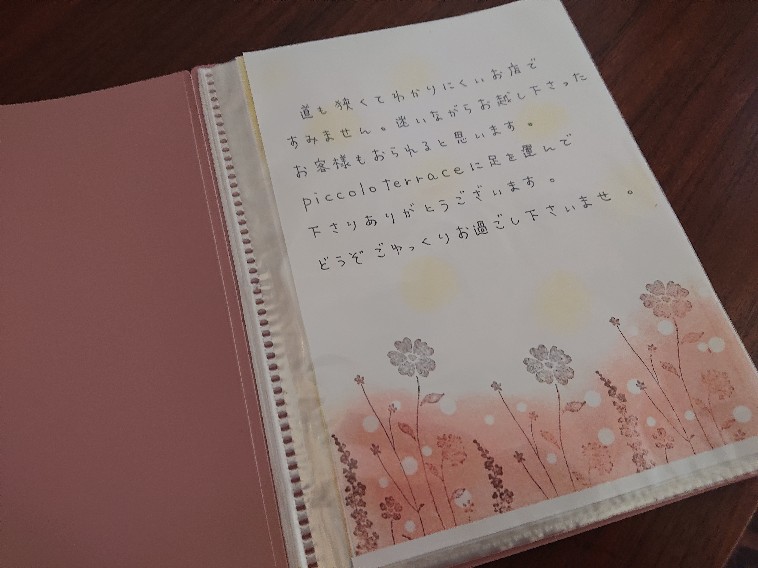 道も狭くてわかりにくいお店で
すみません。迷いながらお越し下さった
お客様もおられると思います。
piccolo terraceに足を運んで
下さりありがとうございます。
どうぞごゆっくりお過ごし下さいませ。